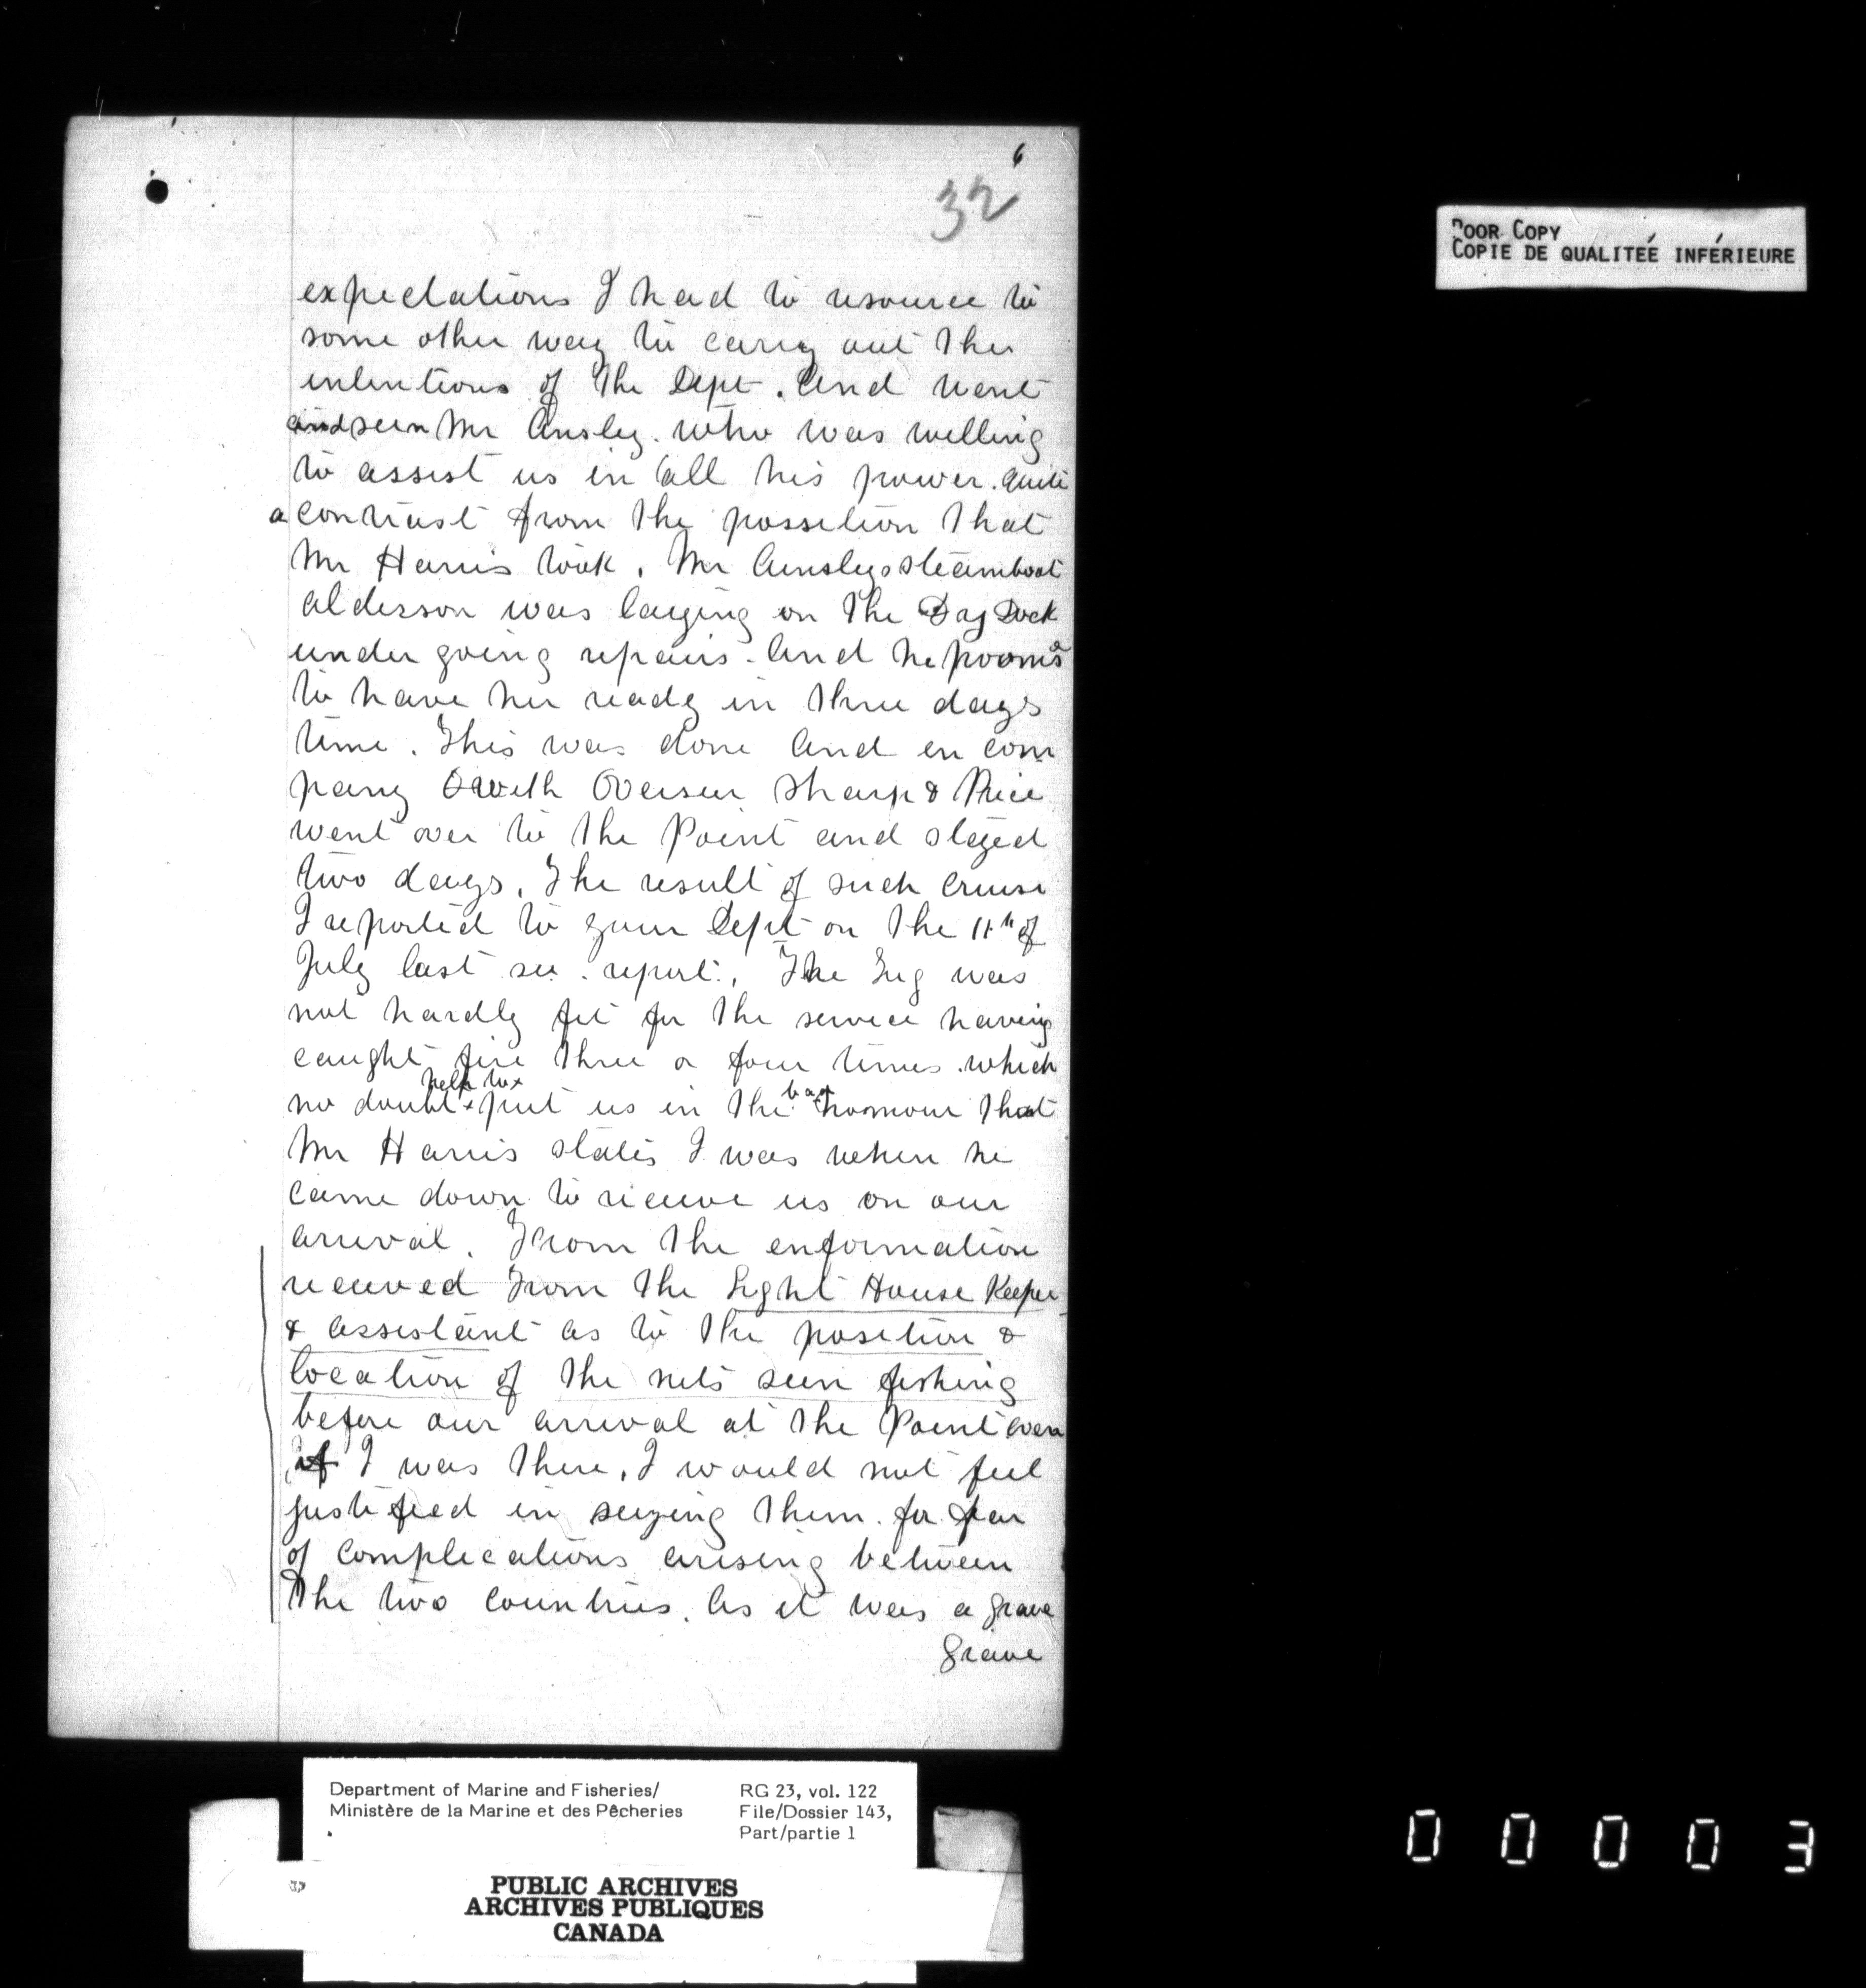 6
32
POOR COPY
COPIE DE QUALITÉE INFÉRIEURE
expectations I had to resource to
some other way to carry out the
intentions of the Dept. And went
and seen Mr Ansley. who was willing
to assist us in all his power. quite
a contrast from the possition that
Mr Harris took. Mr Ainsleys steamboat
alderson was laying on the Dry Dock
under going repairs. And he promsd
to have her ready in three days
time. This was done and in com
pany with Overseer Sharp & Price
went over to the Point and stayed
two days. The result of such cruise
I reported to your Dept on the 11th of
July last see. report. The Tug was
not hardly fit for the service having
caught fire three or four times. which
no doubt help to put us in the bad homour that
Mr Harris states I was when he
came down to recieve us on our
arrival. From the enformation
received from the Light House Keeper
& assistant as to the position &
location of the nets seen fishing
before our arrival at the Point even
if I was there, I would not feel
justifeed in seizing them. for fear
of complications arising between
the two countries. As it was a grave
grave
Department of Marine and Fisheries/
Ministère de la Marine et des Pêcheries
RG 23, vol. 122
File/Dossier 143,
Part/partie 1
PUBLIC ARCHIVES
ARCHIVES PUBLIQUES
CANADA
0 0 0 0 3